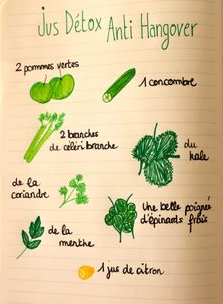 Jus Détox Anti Hangover
2 pommes vertes
1 concombre
2 branches
de céleri branche
du
kale
de la
coriandre
Une belle poignée
d'épinards frais
de la
menthe
1 jus de citron